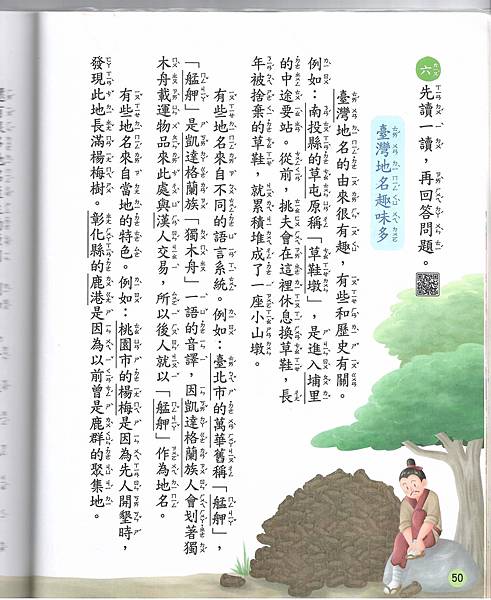 六 先讀一讀，再回答問題。
臺灣地名趣味多
臺灣地名的由來很有趣，有些和歷史有關。
例如：南投縣的草屯原稱「草鞋墩」，是進入埔里
的中途要站。從前，挑夫會在這裡休息換草鞋，長
年被捨棄的草鞋，就累積堆成了一座小山墩。
有些地名來自不同的語言系統。例如：臺北市的萬華舊稱「艋舺」，
「艋舺」是凱達格蘭族「獨木舟」一語的音譯，因凱達格蘭族人會划著獨
木舟載運物品來此處與漢人交易，所以後人就以「艋舺」作為地名。
有些地名來自當地的特色。例如：桃園市的楊梅是因為先人開墾時，
發現此地長滿楊梅樹。彰化縣的鹿港是因為以前曾是鹿群的聚集地。
50